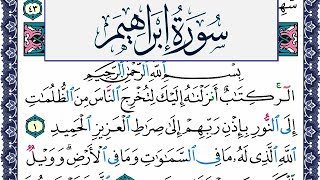 ٤٣
سُورَةُ إِبْرَاهِيمَ
بِسْمِ اللَّهِ الرَّحْمَٰنِ الرَّحِيمِ
الٓر ۚ كِتَٰبٌ أَنزَلْنَٰهُ إِلَيْكَ لِتُخْرِجَ النَّاسَ مِنَ الظُّلُمَٰتِ
إِلَى النُّورِ بِإِذْنِ رَبِّهِمْ إِلَىٰ صِرَٰطِ الْعَزِيزِ الْحَمِيدِ ١
اللَّهِ الَّذِي لَهُۥ مَا فِي السَّمَٰوَٰتِ وَمَا فِي الْأَرْضِ ۗ وَوَيْلٌ